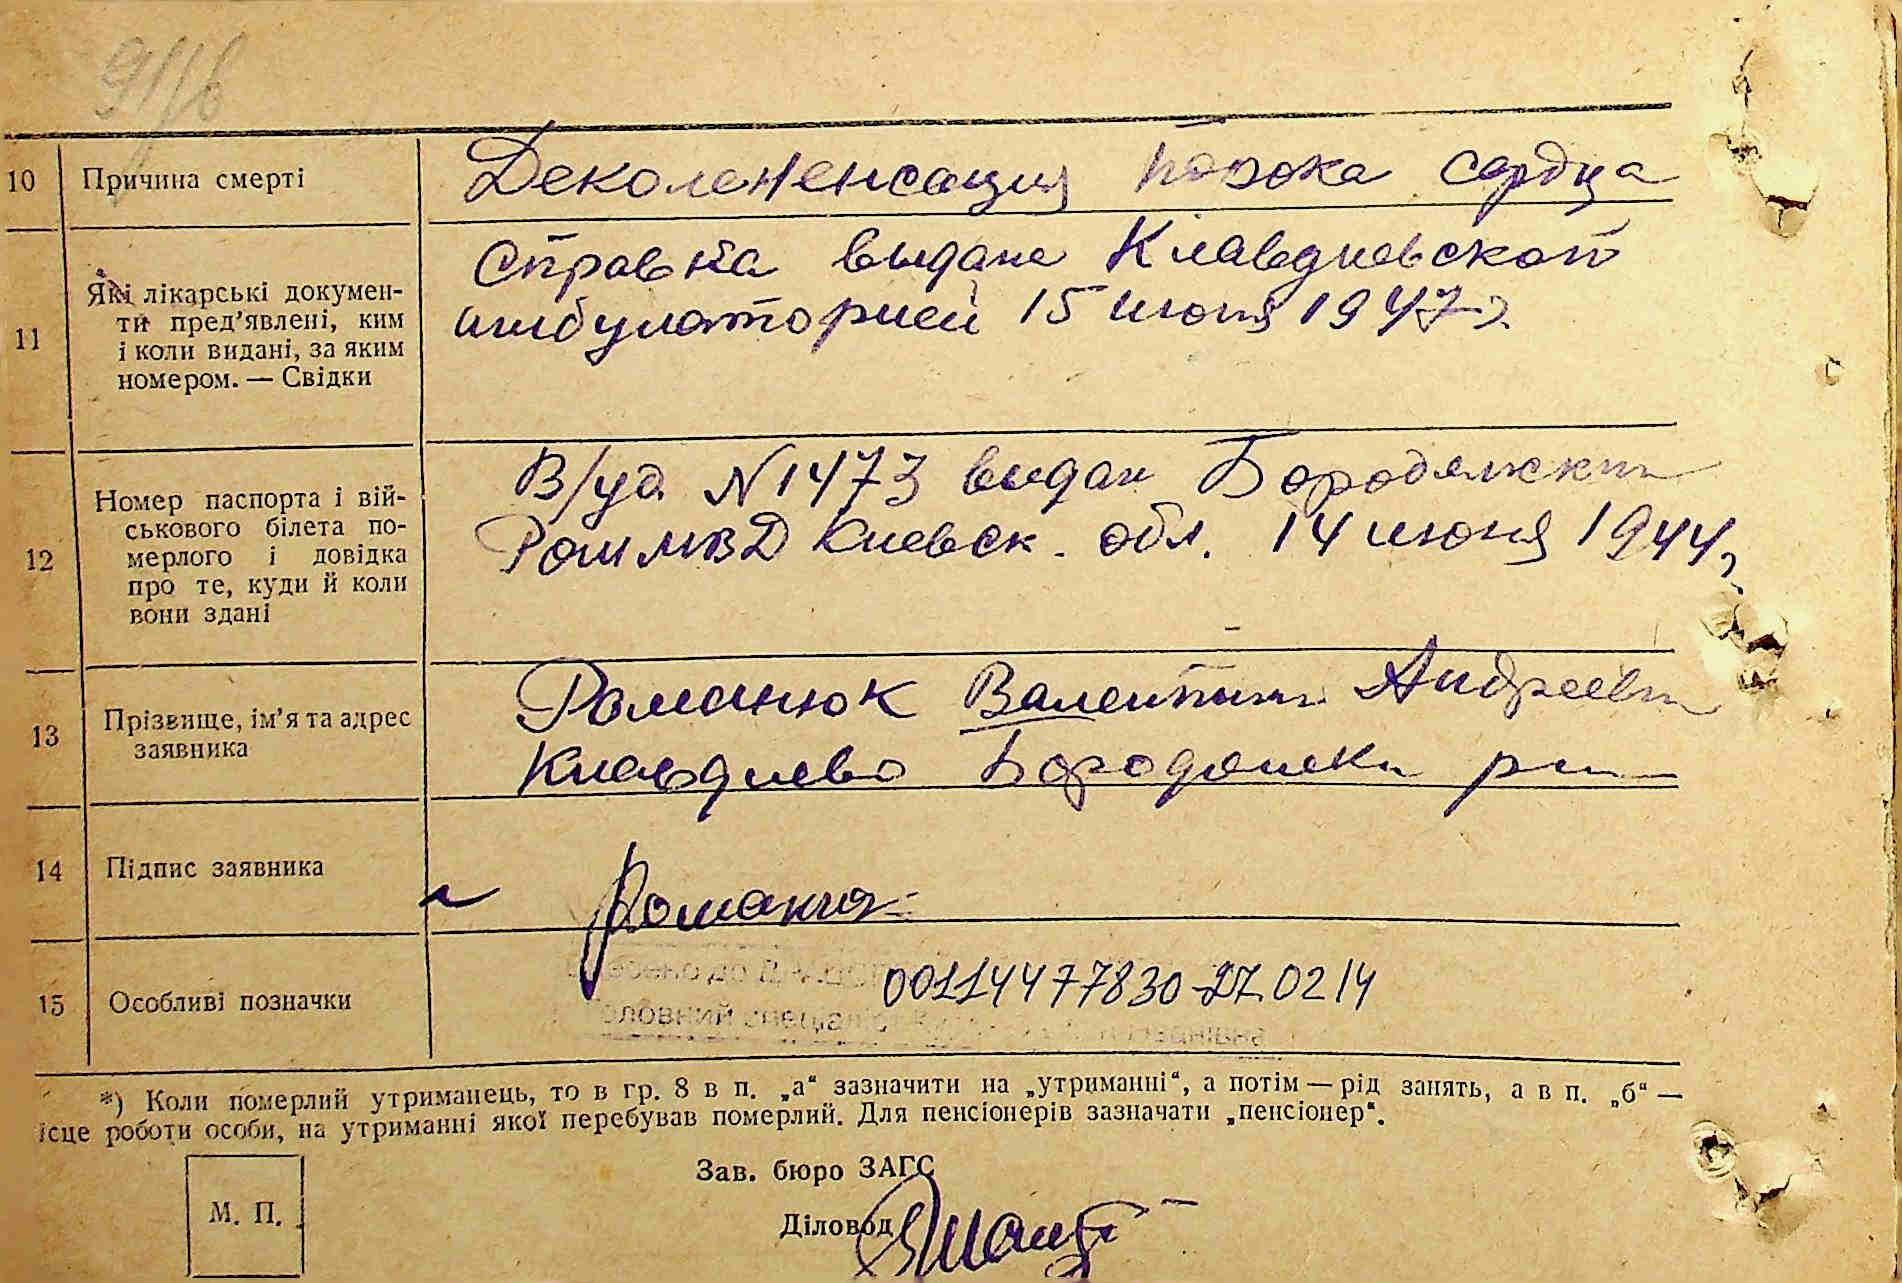 10 Причина смерті
Декомпенсация порока сердца
11 Які лікарські докумен-
ти пред’явлені, ким
і коли видані, за яким
номером. — Свідки
Справка выдана Клавдиевской
амбулаторией 15 июня 1947 г.
12 Номер паспорта і вій-
ськового білета по-
мерлого і довідка
про те, куди й коли
вони здані
В/уд N 1473 выдан Бородянским
Ром МВД Киевск. обл. 14 июня 1944 г.
13 Прізвище, ім’я та адрес
заявника
Романюк Валентин Андреевич
Клавдиево Бородянски
14 Підпис заявника
15 Особливі позначки
00114477830
*) Коли померлий утриманець, то в гр. 8 в п. „а“ зазначити на „утриманні“, а потім — рід занять, а в п. „б“ —
ісце роботи особи, на утриманні якої перебував померлий. Для пенсіонерів зазначати „пенсіонер“.
Зав. бюро ЗАГС
М. П.
Діловод